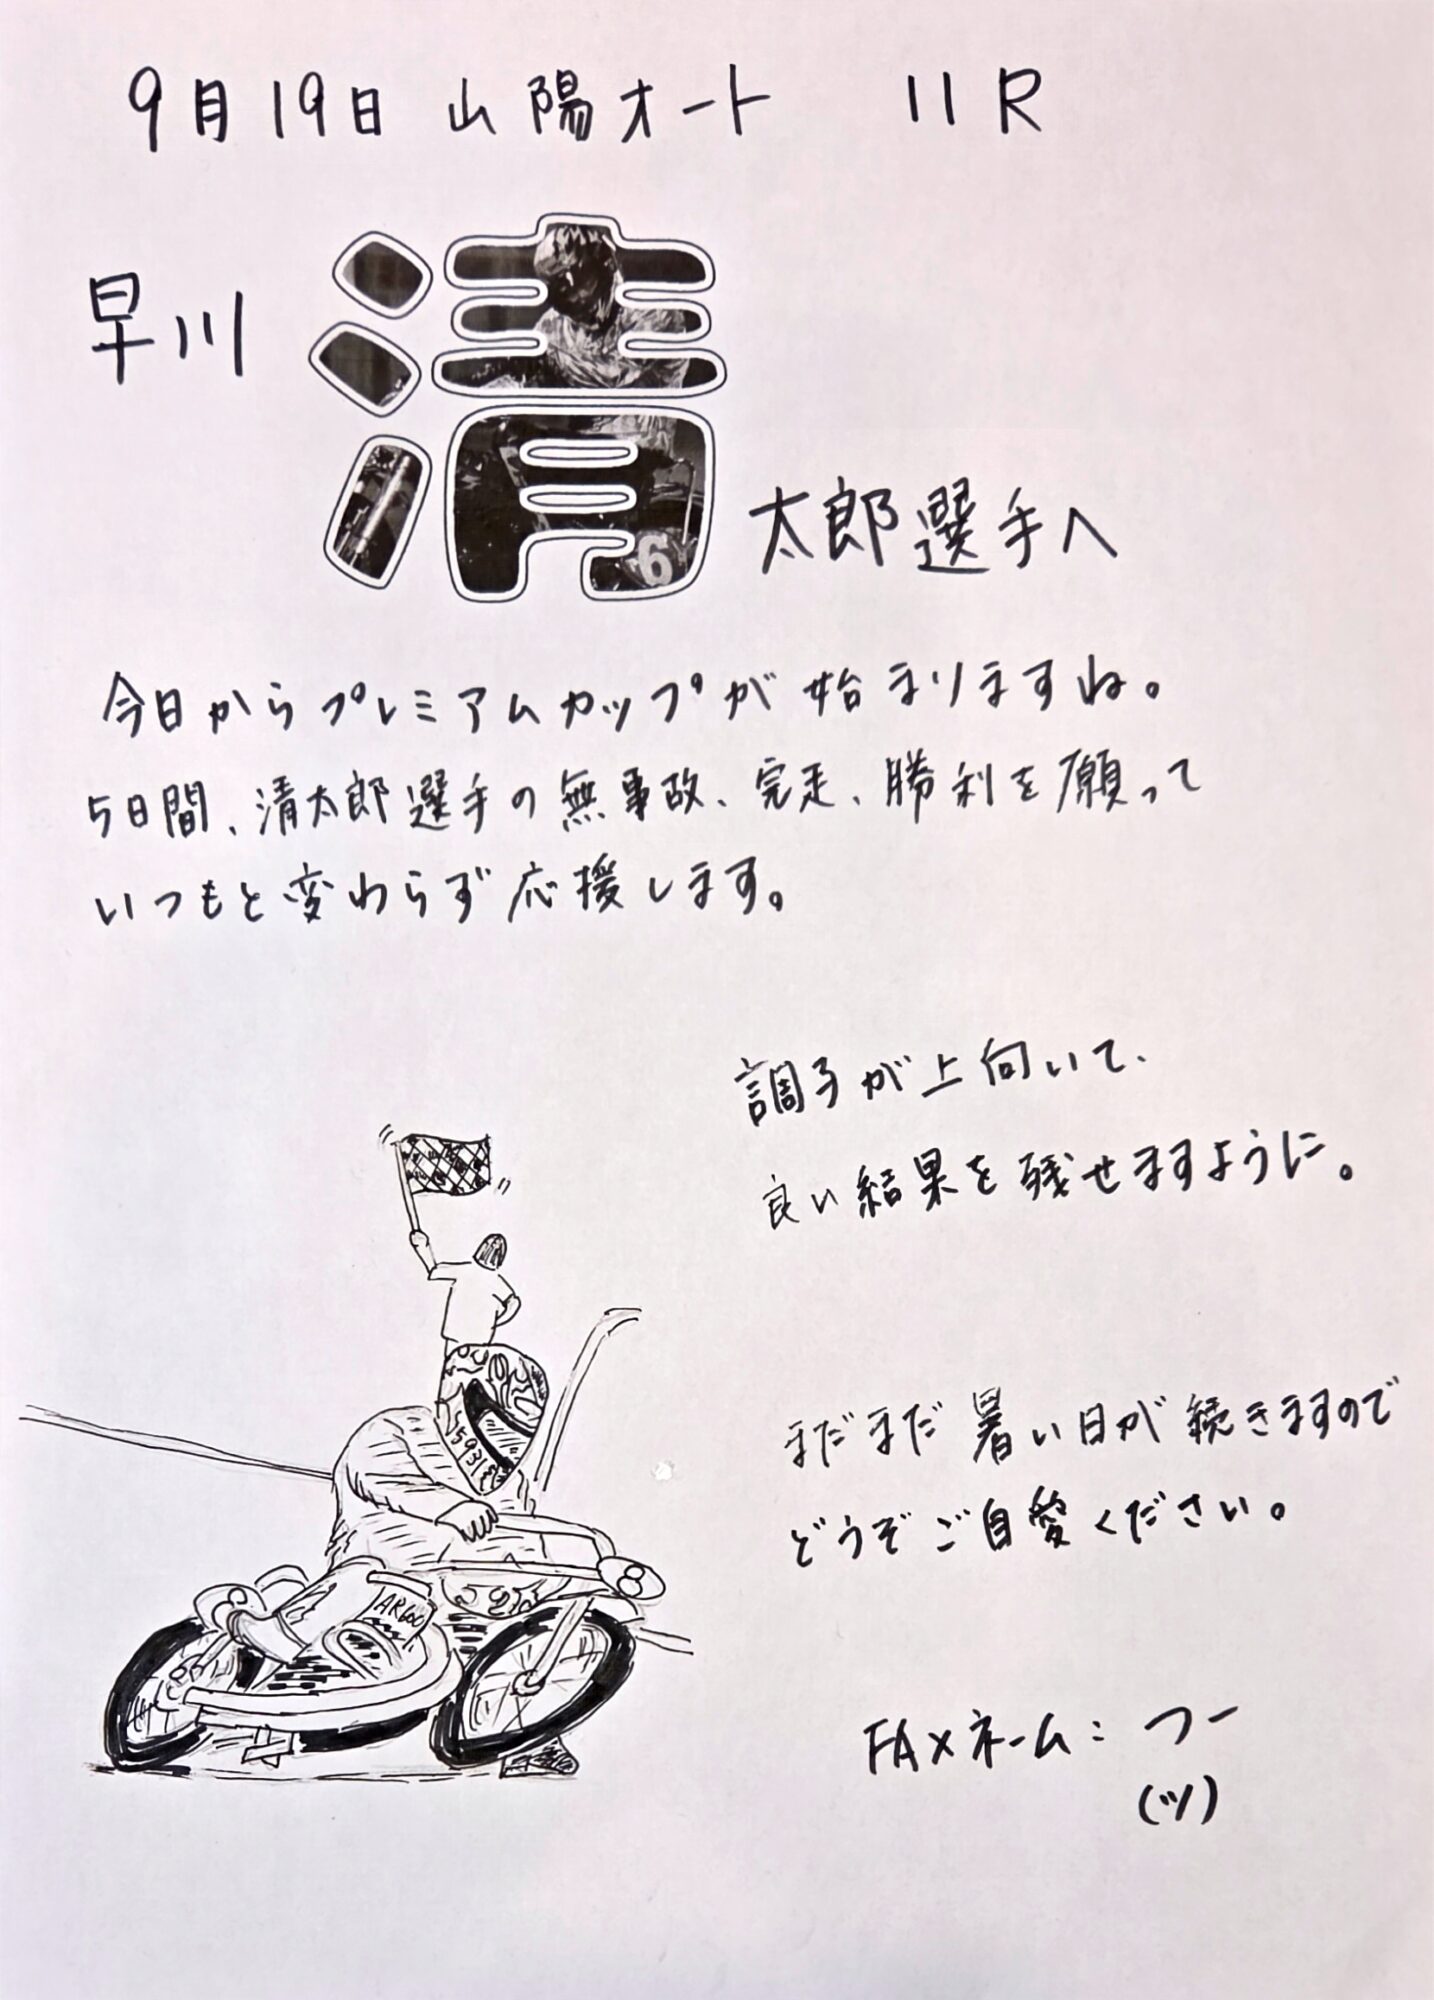 9月19日 山陽オート 11R
早川 清 太郎選手へ
6
今日からプレミアムカップが始まりますね。
5日間、清太郎選手の無事故、完走、勝利を願って
いつもと変わらず応援します。
調子が上向いて、
良い結果を残せますように。
まだまだ暑い日が続きますので
どうぞご自愛ください。
8
AR600
FAXネーム: つー
(ツ)